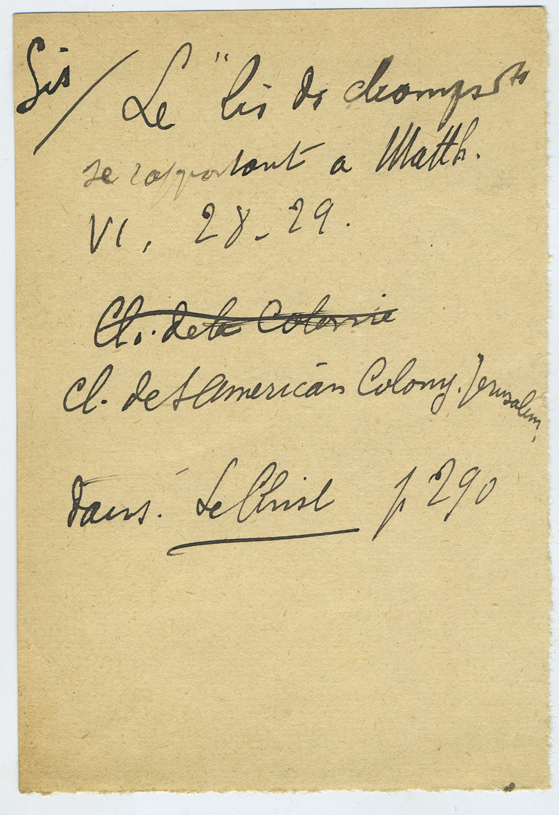 Lis / Le "lis des champs"
se rapportant a Matth.
VI, 28-29.
Cl. de la Colonie
Cl. de l'American Colony. Jerusalem.
dans. Le Christ p 290